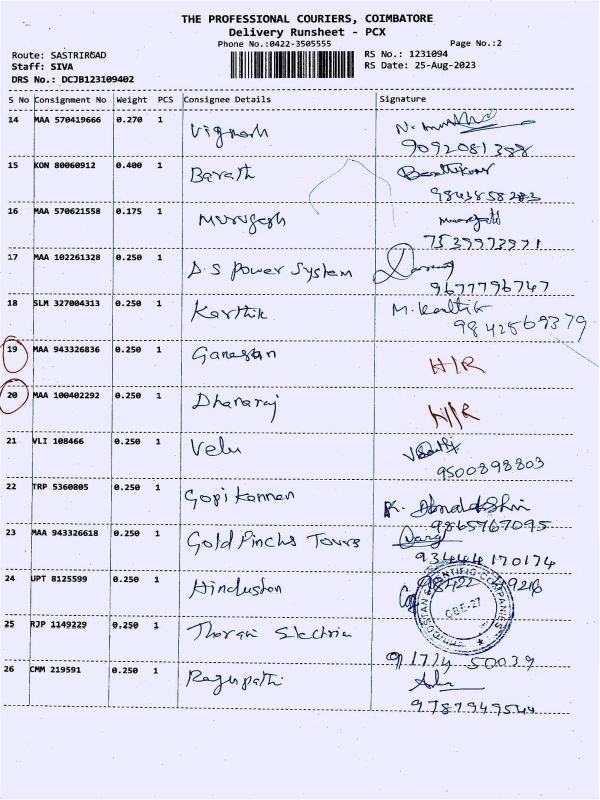 THE PROFESSIONAL COURIERS, COIMBATORE
Delivery Runsheet - PCX
Phone No.:0422-3505555 Page No.:2
Route: SASTRIROAD RS No.: 1231094
Staff: SIVA RS Date: 25-Aug-2023
DRS No.: DCJB123109402
S No Consignment No Weight PCS Consignee Details Signature
14 MAA 570419666 0.270 1 Vignesh
9092081388
15 KON 80060912 0.400 1 Barath
9843858283
16 MAA 570621558 0.175 1 Murugesh
7539973971
17 MAA 102261328 0.250 1 D.S Power System
9677796747
18 SLM 327004313 0.250 1 Karthik M. Karthik
9842569379
19 MAA 943326836 0.250 1 Ganesan N/R
20 MAA 100402292 0.250 1 Dhanaraj N/R
21 VLI 108466 0.250 1 Velu
9500898803
22 TRP 5360805 0.250 1 Gopi Kannan
9865767095
23 MAA 943326618 0.250 1 Gold Pinchs Tours
93444170174
24 UPT 8125599 0.250 1 Hindustan
HINDUSTAN SCIENTIFIC COMPANIES
CBE-27
25 RJP 1149229 0.250 1
91774 50039
26 CMM 219591 0.250 1 Ragupathi
9787949544